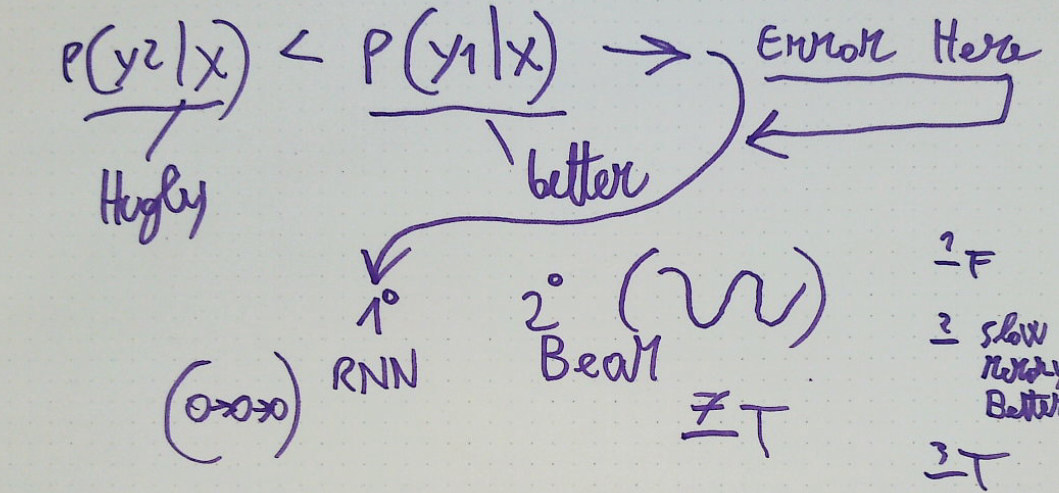 P(y2|x) < P(y1|x) → Error Here
Hugly
better
1° 2°
RNN Beam
(0→0→0)
7 T
1 F
2 slow
Better
3 T